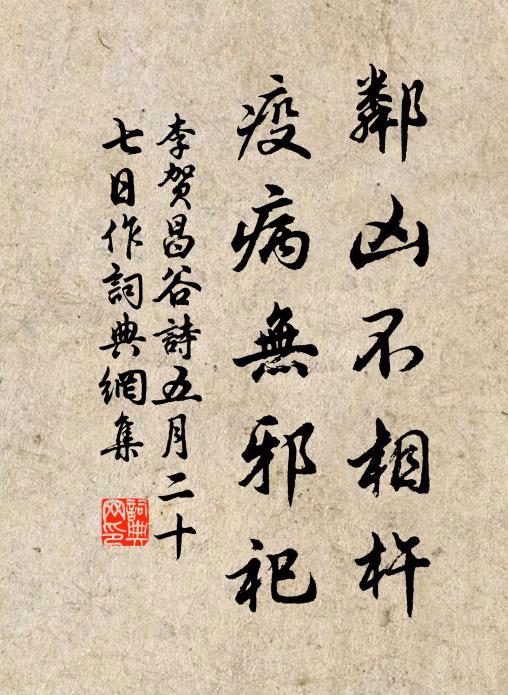 鄰凶不相杵
疫病無邪祀
李賀昌谷詩五月二十
七日作詞典網集
詞典網印